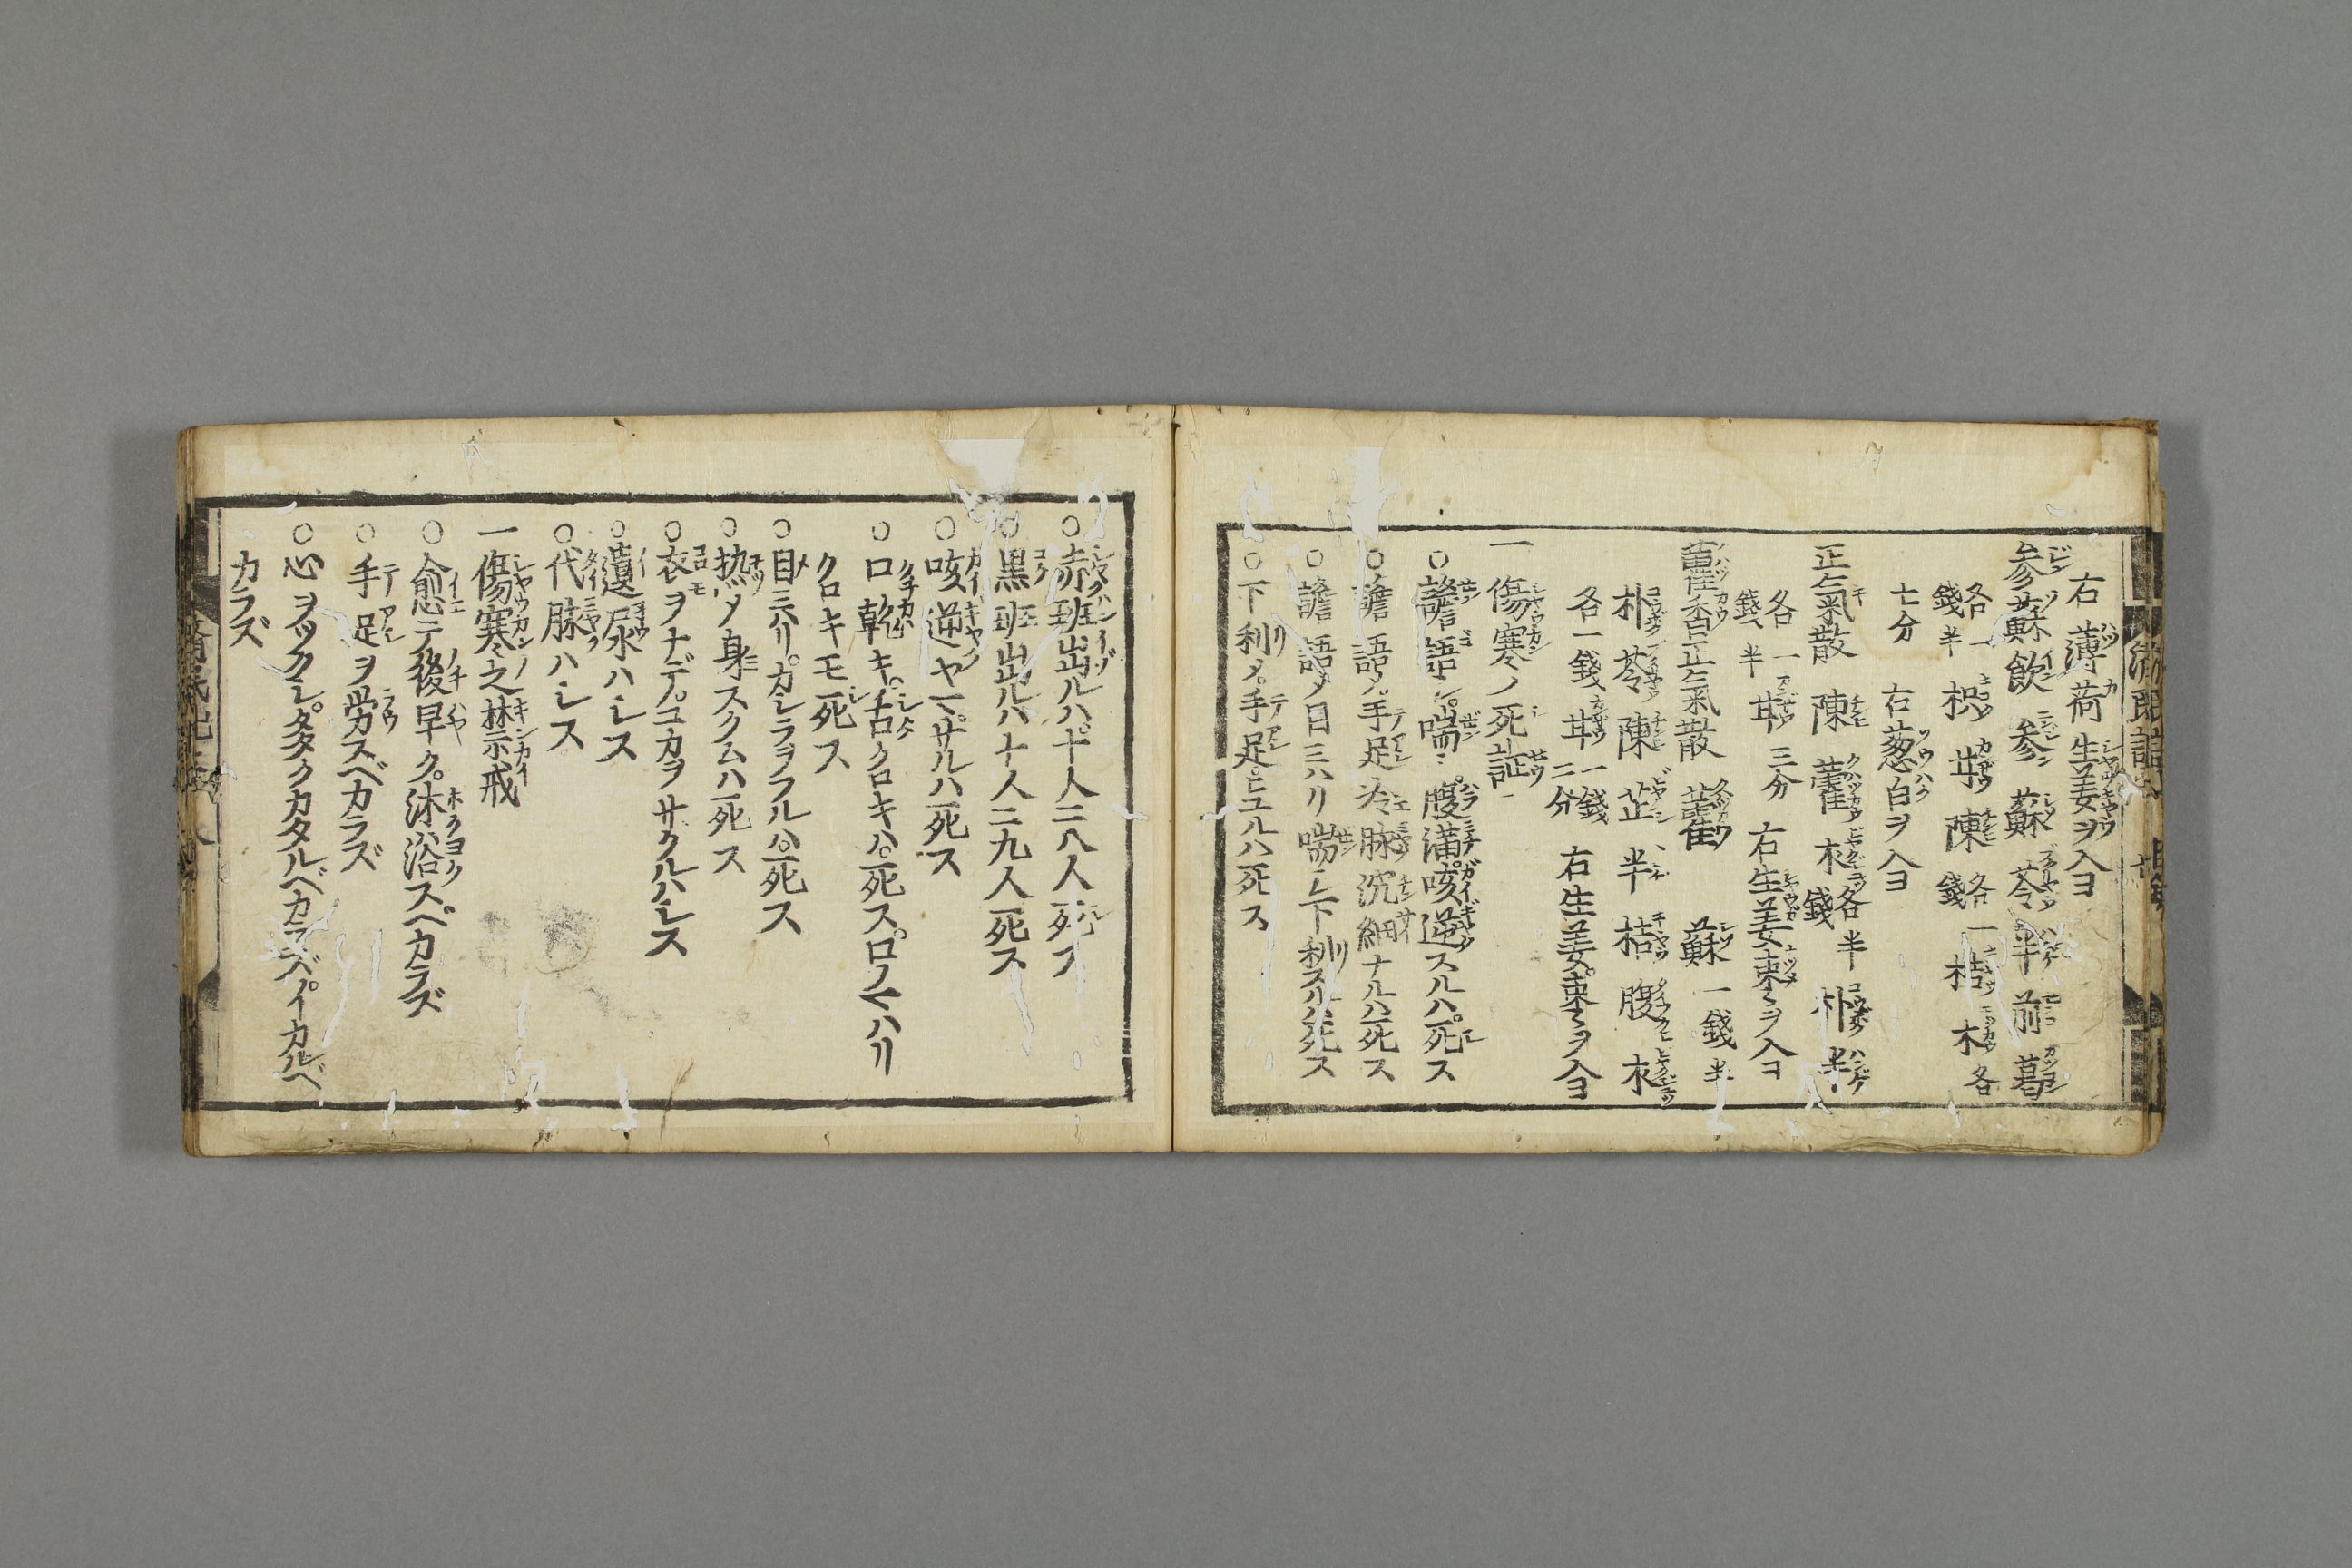 右薄荷生姜ヲ入ヨ
参蘇飲 参 蘇 苓 半 前 葛
各一錢半 枳 甘 陳 各一錢 桔 木 各
七分 右葱白ヲ入ヨ
正氣散 陳 藿 朮 各半錢 朴 半
各一錢半 甘 三分 右生姜棗ヲ入ヨ
藿香正氣散 藿 蘇 一錢半
朴 苓 陳 芷 半 桔 腹 朮
各一錢 甘 一錢二分 右生姜棗ヲ入ヨ
一傷寒ノ死証
○譫語シ喘シ腹満咳逆スルハ死ス
○譫語〆手足冷脉沉細ナルハ死ス
○譫語〆目ミハリ喘シ下利スルハ死ス
○下利〆手足ヒユルハ死ス
○赤斑出ルハ十人ニ八人死ス
○黒斑出ルハ十人ニ九人死ス
○咳逆ヤマサルハ死ス
○口乾キ舌クロキハ死ス口ノマハリ
クロキモ死ス
○目ミハリカシラヲフルハ死ス
○热〆身スクムハ死ス
○衣ヲナデコカヲサクルハシス
○遺尿ハシス
○代脉ハシス
一傷寒之禁戒
○愈テ後早ク沐浴スベカラズ
○手足ヲ労スベカラズ
○心ヲツクシタタクカタルベカラズイカルベ
カラズ